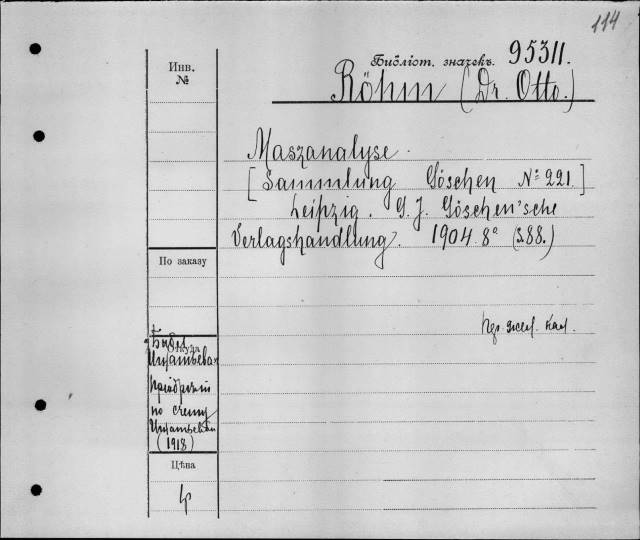 114
Инв.
№
Библіот. значекъ 95311.
Röhm (Dr. Otto.)
Maszanalyse.
[Sammlung Göschen № 221.]
Leipzig. G. J. Göschen'sche
Verlagshandlung. 1904. 8° (S. 88.)
По заказу
Откуда
по счету
(1918)
Цѣна